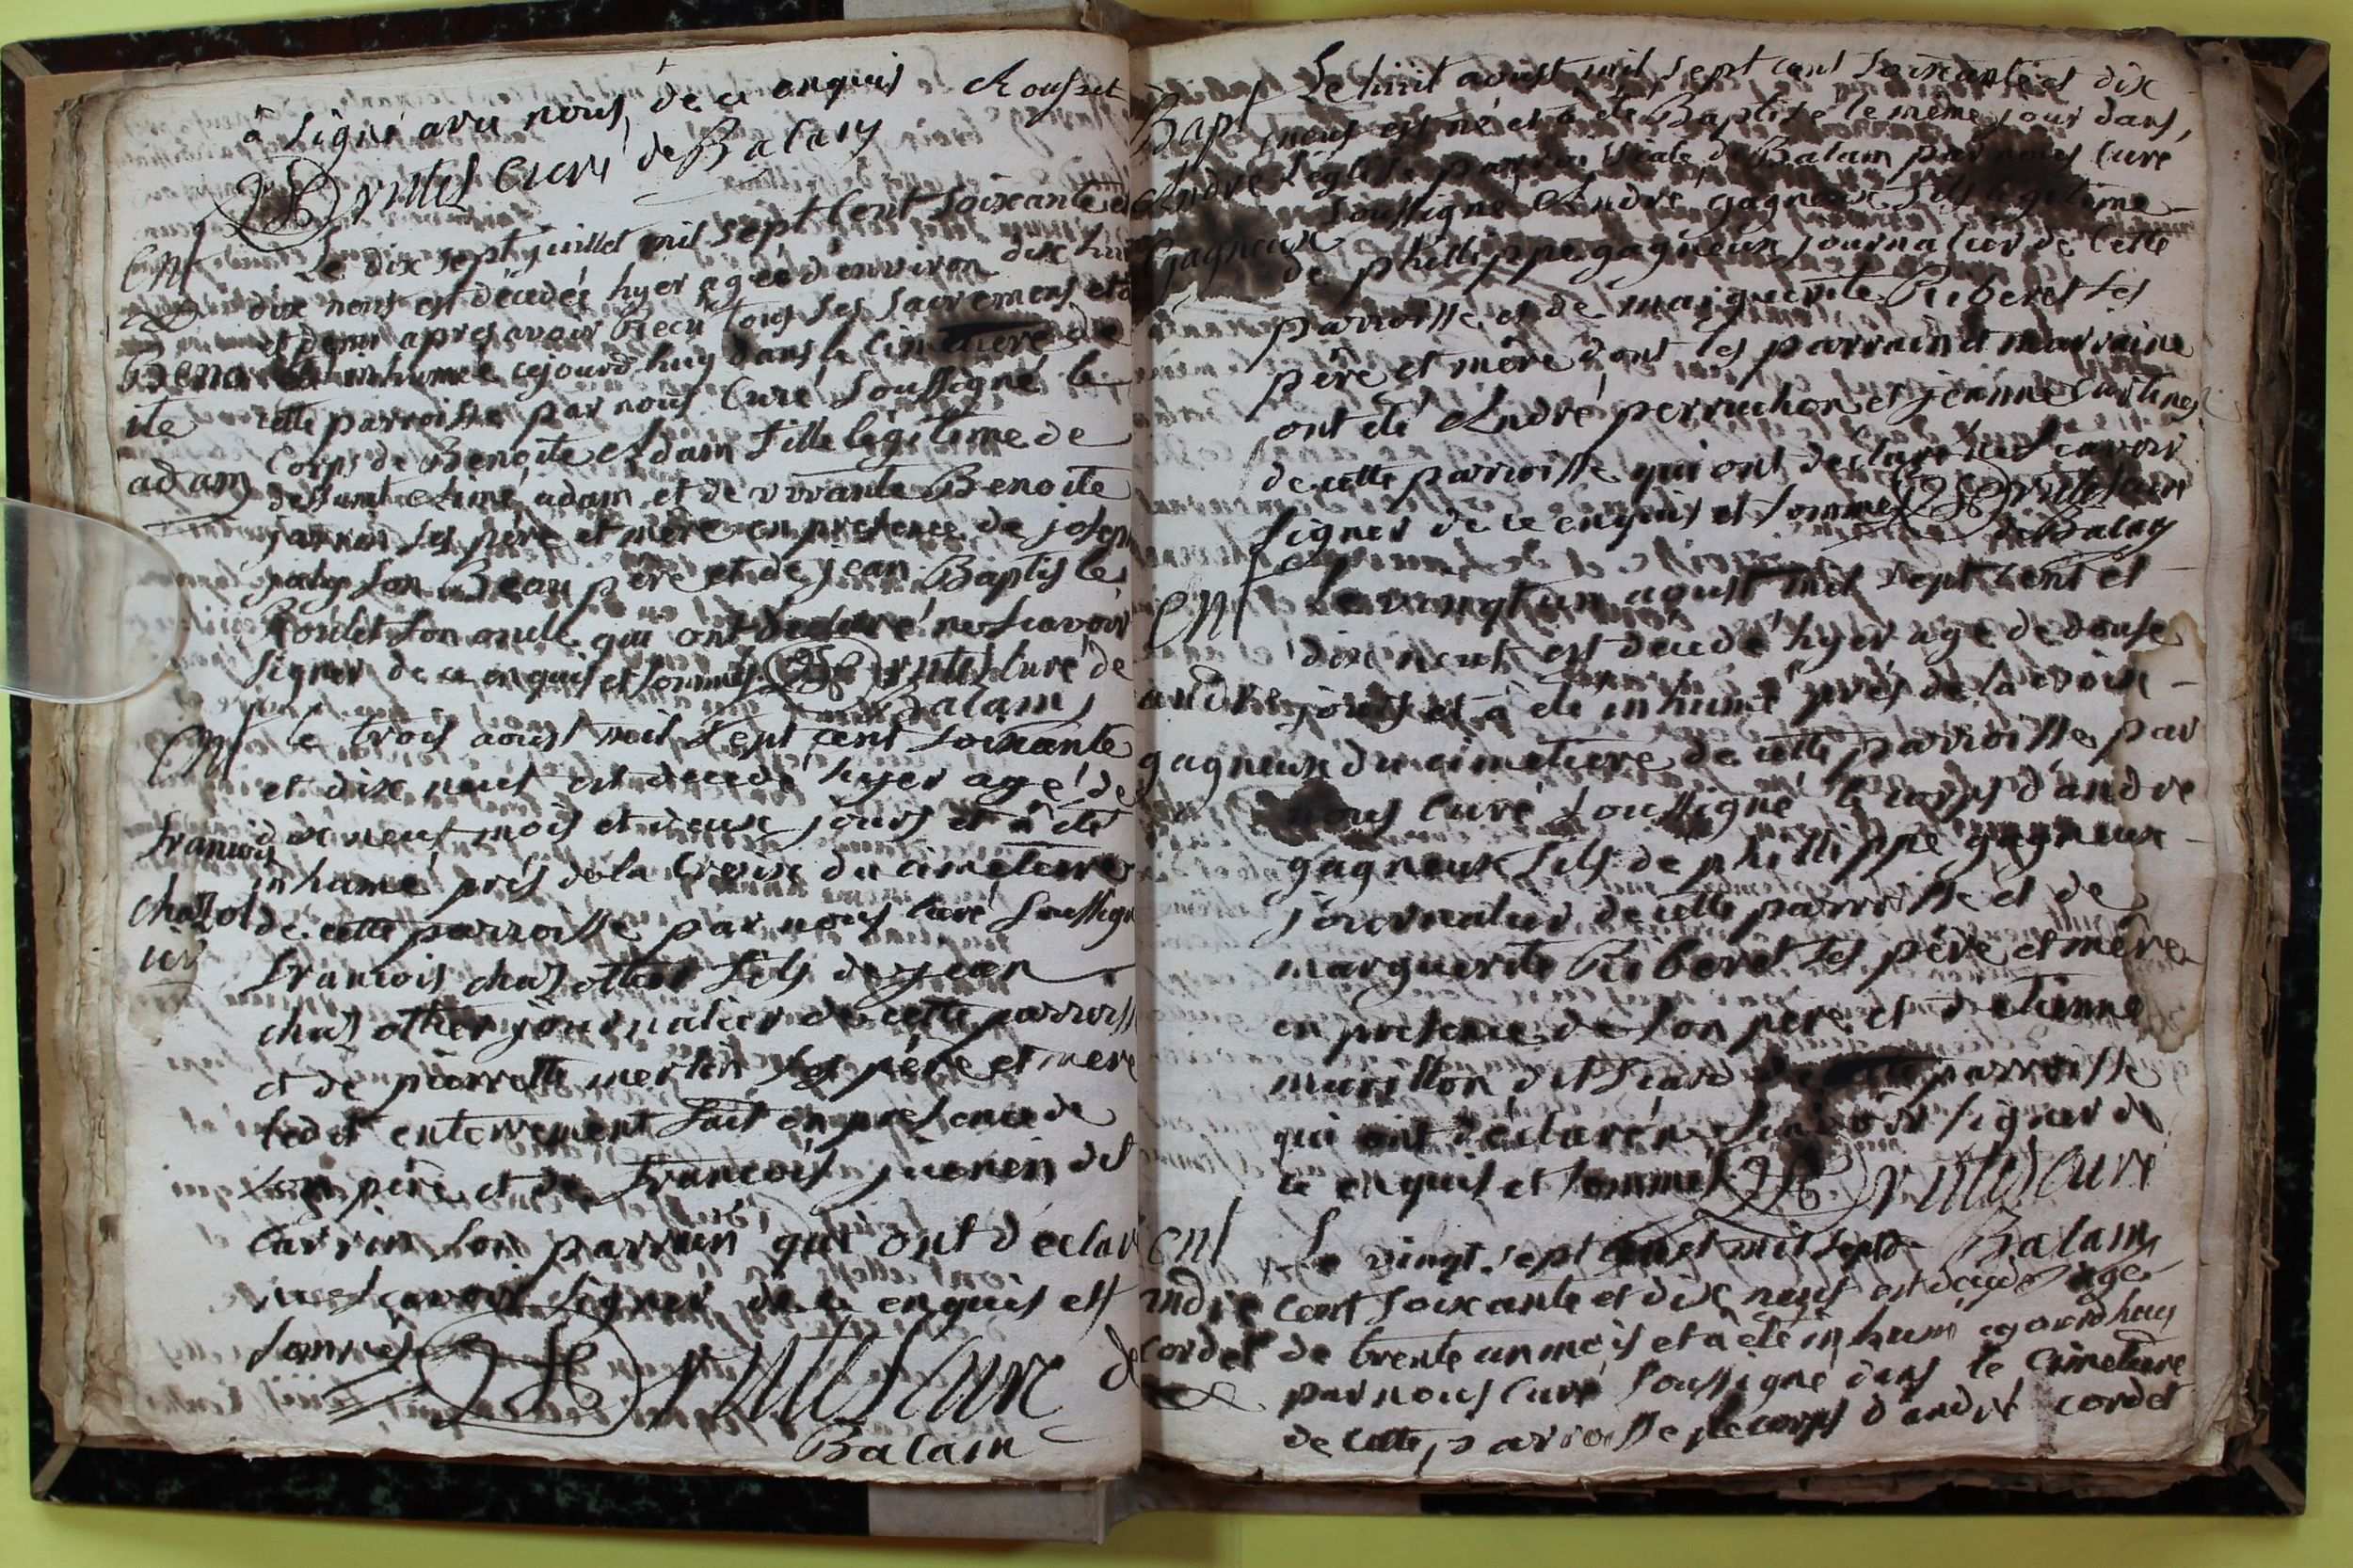 à signé avec nous de ce enquis Rousset
Brutés Curé de Balam
Ent
Le dix sept juillet mil sept Cent soixante et
dix neuf est décédée hyer agée d'environ dix huit
et demi apres avoir Recu tous ses sacremens et à
Benoite
été inhumée cejourd'huy dans le cimetiere de
cette parroisse par nous Curé soussigné le
adam
Corps de Benoite Adam fille légitime de
deffunt Aimé adam et de vivante Benoite
ses père et mère en presence de joseph
son Beau père et de jean Baptiste
Roulet son oncle qui ont declaré ne scavoir
signer de ce enquis et sommés Brutés curé de
Balam
Ent
le trois aoust mil sept cent soixante
et dix neuf est decedé hyer agé de
dix neuf mois et deux jours et à été
francois
inhumé près de la Croix du cimetiere
chazotier
de cette parroisse par nous curé soussigné
francois chazottier fils de jean
chazottier journalier de cette parroisse
et de pierrette merlin ses père et mere
ledit enterrement fait en presence de
son père et de francois juenin dit
carrin son parrain qui ont déclaré
ne scavoir signer de ce enquis et
sommés Brutés Curé de
Balam
Bapt
Le huit aoust mil sept cent soixante et dix
neuf est né et a été Baptisé le même jour dans
André
l'église parroissiale de Balam par nous Curé
soussigné André gagneux fils légitime
Gagneux
de phillippe gagneux journalier de cette
parroisse et de marguerite Riberet ses
père et mère dont les parrain et marraine
ont été André perruchon et jeanne
de cette parroisse qui ont declaré ne scavoir
signer de ce enquis et sommés Brutés curé
de Balam
Ent
Le vingt un aoust mil sept cent et
dix neuf est decedé hyer agé de douse
andre
jours et à été inhumé près de la croix
gagneux
du cimetiere de cette parroisse par
nous Curé soussigné le corps d'andre
gagneux fils de phillippe gagneux
journalier de cette parroisse et de
marguerite Riberet ses père et mère
en presence de son père et d'etienne
murillon dit de cette parroisse
qui ont declaré ne scavoir signer de
ce enquis et sommés Brutés curé
Balam
ent
Le vingt sept aoust mil sept
andre
cent soixante et dix neuf est decedé agé
cordet
de trente un mois et à été inhumé cejourd'huy
par nous Curé soussigné dans le cimetiere
de cette parroisse le corps d'andré cordet